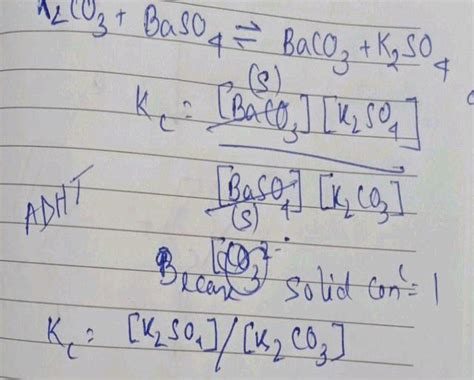 K₂CO₃ + BaSO₄ ⇌ BaCO₃ + K₂SO₄
(S)
K_c = [BaCO₃] [K₂SO₄]
[BaSO₄] [K₂CO₃]
(S)
ADHT
[CO₃²⁻]
Becaus solid conᶜ = 1
K_c = [K₂SO₄] / [K₂CO₃]